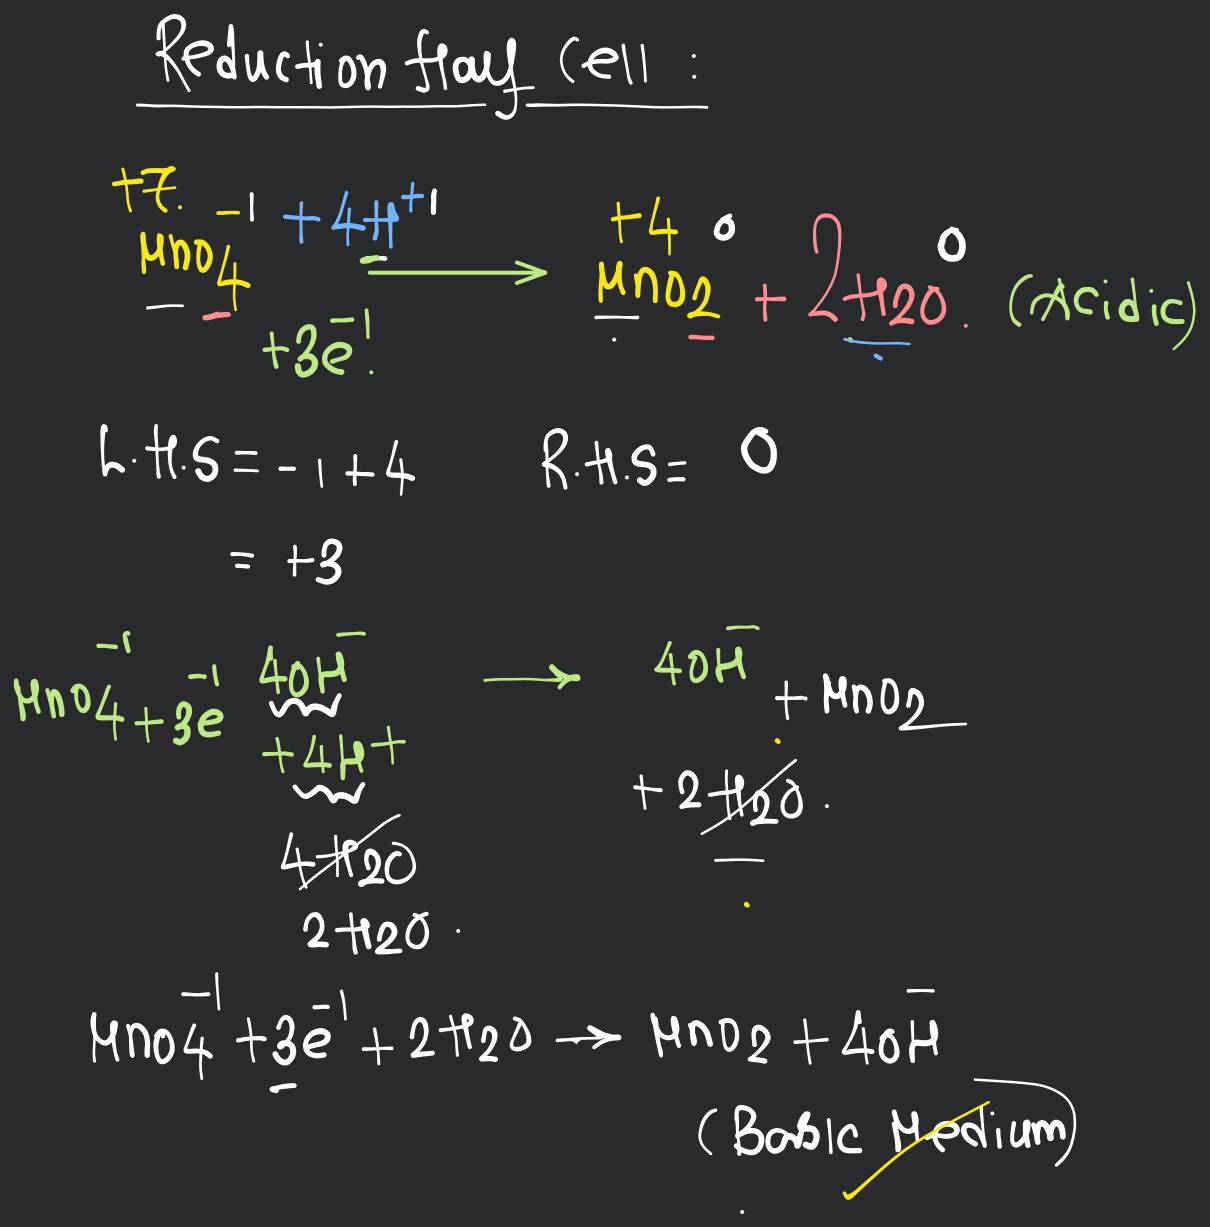 Reduction Half Cell :
+7 -1 +4H+1 +4 0 0
MnO4 → MnO2 + 2H2O (Acidic)
+3e-1
L.H.S = -1+4 R.H.S = 0
= +3
MnO4-1 +3e-1 4OH- → 4OH- + MnO2
+4H+ +2H2O
4H2O
2H2O
MnO4-1 +3e-1 +2H2O → MnO2 + 4OH-
(Basic Medium)